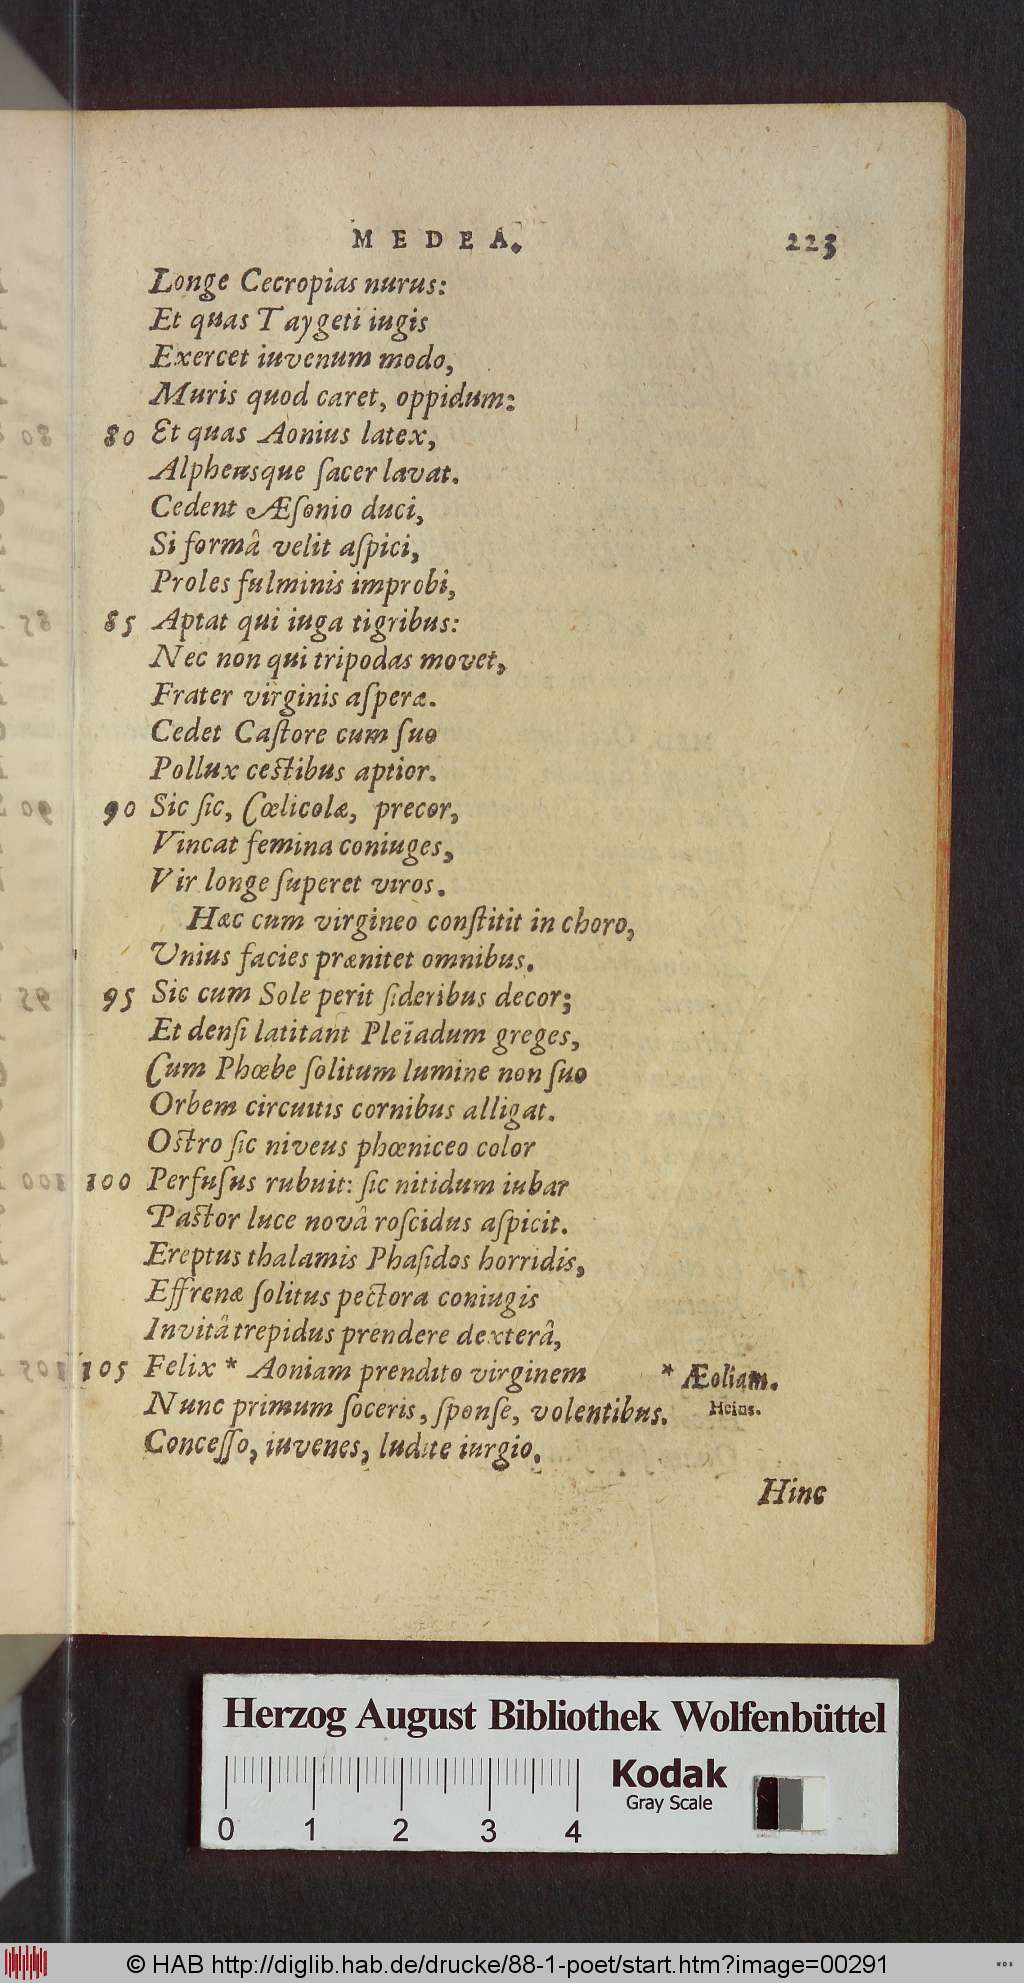 MEDEA. 223
Longe Cecropias nurus:
Et quas Taygeti iugis
Exercet iuvenum modo,
Muris quod caret, oppidum:
80 Et quas Aonius latex,
Alpheusque ſacer lavat.
Cedent Æſonio duci,
Si formâ velit aſpici,
Proles fulminis improbi,
85 Aptat qui iuga tigribus:
Nec non qui tripodas movet,
Frater virginis aſperæ.
Cedet Caſtore cum ſuo
Pollux ceſtibus aptior.
90 Sic ſic, Cœlicolæ, precor,
Vincat femina coniuges,
Vir longe ſuperet viros.
Hæc cum virgineo conſtitit in choro,
Unius facies prænitet omnibus.
95 Sic cum Sole perit ſideribus decor;
Et denſi latitant Pleïadum greges,
Cum Phœbe ſolitum lumine non ſuo
Orbem circuitis cornibus alligat.
Oſtro ſic niveus phœniceo color
100 Perfuſus rubuit: ſic nitidum iubar
Paſtor luce novâ roſcidus aſpicit.
Ereptus thalamis Phaſidos horridis,
Effrenæ ſolitus pectora coniugis
Invitâ trepidus prendere dexterâ,
105 Felix * Aoniam prendito virginem * Æoliam.
Nunc primum ſoceris, ſponſe, volentibus. Heins.
Conceſſo, iuvenes, ludite iurgio.
Hinc
Herzog August Bibliothek Wolfenbüttel
Kodak
Gray Scale
0 1 2 3 4
© HAB http://diglib.hab.de/drucke/88-1-poet/start.htm?image=00291